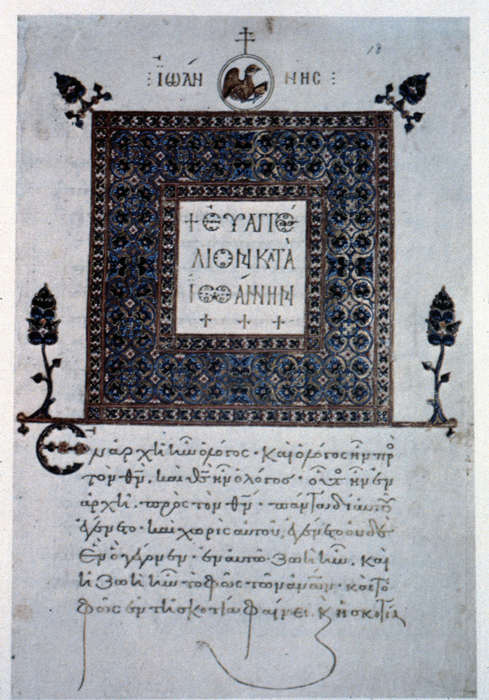 ἸΩΆΝ ΝΗC
18
+ ΕΥΑΓΓΕ
ΛΙΟΝ ΚΑΤᾺ
ἸΩΆΝΝΗΝ
+ + +
Ἐν ἀρχῆι ἦν ὁ λόγος· καὶ ὁ λόγος ἦν πρὸ
τὸν θν, καὶ θς ἦν ὁ λόγος· οὗτος ἦν ἐν
ἀρχῆι πρὸς τὸν θν· πάντα δι' αὐτοῦ
ἐγένετο· καὶ χωρὶς αὐτοῦ, ἐγένετο οὐδὲ
ἓν ὃ γέγονεν· ἐν αὐτῶ ζωὴ ἦν, καὶ
ἡ ζωὴ ἦν τὸ φῶς τῶν ἀνων· καὶ τὸ
φῶς ἐν τῆ σκοτία φαίνει. κ ἡ σκοτία